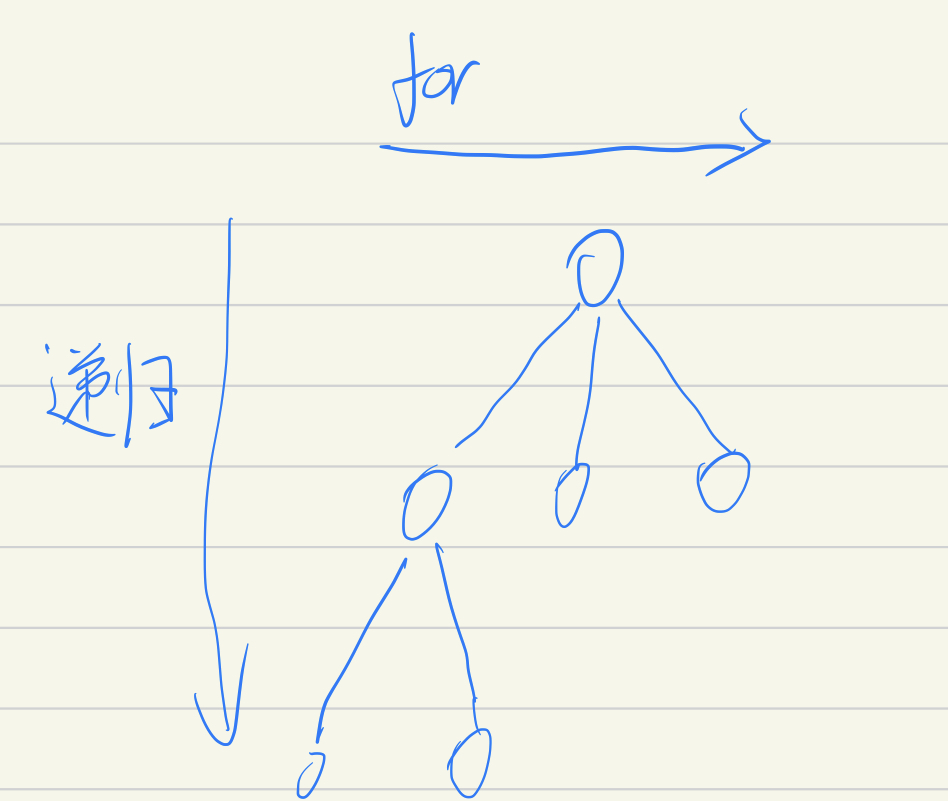 for
递归